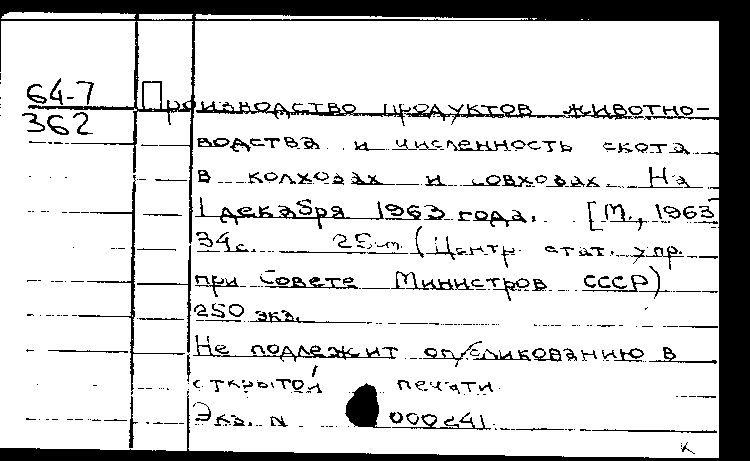 64-7
362
Производство продуктов животно-
водства и численность скота
в колхозах и совхозах. На
1 декабря 1963 года. [М., 1963]
34 с. 25 см (Центр. стат. упр.
при Совете Министров СССР)
250 экз.
Не подлежит опубликованию в
открытой печати.
Экз. N
к